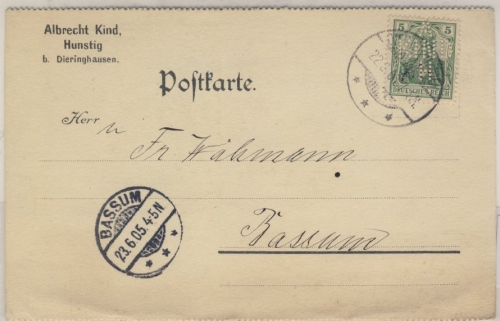 Albrecht Kind,
Hunstig
b. Dieringhausen.
5 5
DEUTSCHES REICH
Postkarte.
Herrn
Fr. Wähmann
Bassum
BASSUM
23.6.05.4-5N